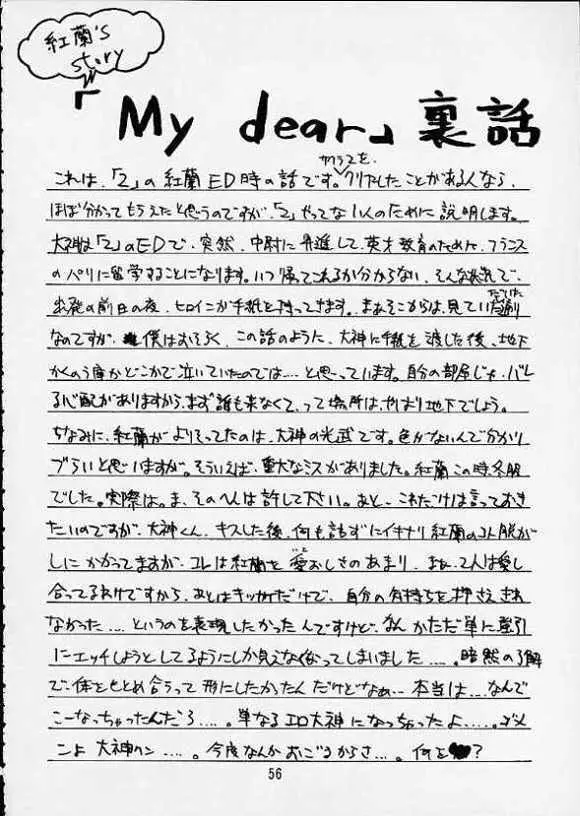 紅蘭's
story
「My dear」裏話
これは、「2」の紅蘭ED時の話です。クリアしたことがある人なら、
ほぼ分かってもらえたと思うのですが、「2」やってない人のために説明します。
大神は「2」のEDで、突然、中尉に昇進して、英才教育のために、フランス
のパリに留学することになります。いつ帰ってこれるか分からない、そんな状況で、
出発の前日の夜、ヒロインが手紙を持ってきます。まあそこからは、見ていただいた通り
なのですが、僕はおそらく、この話のように、大神に手紙を渡した後、地下
かくのう庫かどこかで泣いていたのでは…と思っています。自分の部屋じゃ、バレ
る心配がありますから、まず誰も来なくて、って場所は、やはり地下でしょう。
ちなみに、紅蘭がよりそってたのは、大神の光武です。色がないんで分かり
づらいと思いますが。そういえば、重大なミスがありました。紅蘭この時、冬服
でした。実際は。ま、そのへんは許して下さい。あと、これだけは言っておき
たいのですが、大神くん、キスした後、何も話さずにイキナリ紅蘭のコト脱が
しにかかってますが、コレは紅蘭を愛おしさのあまり、まあ、2人は愛し
合ってるわけですから、あとはキッカケだけで、自分の気持ちを押さえきれ
なかった…というのを表現したかったんですけど、なんかただ単に強引
にエッチしようとしてるようにしか見えなくなってしまいました…。暗然の了解
で、体をもとめ合うって形にしたかったんだけどなぁ…本当は…なんで
こーなっちゃったんだろ…。単なるエロ大神になっちゃったよ…。ゴメ
ンよ 大神クン…。今度なんかおごるからさ…。何を？
56